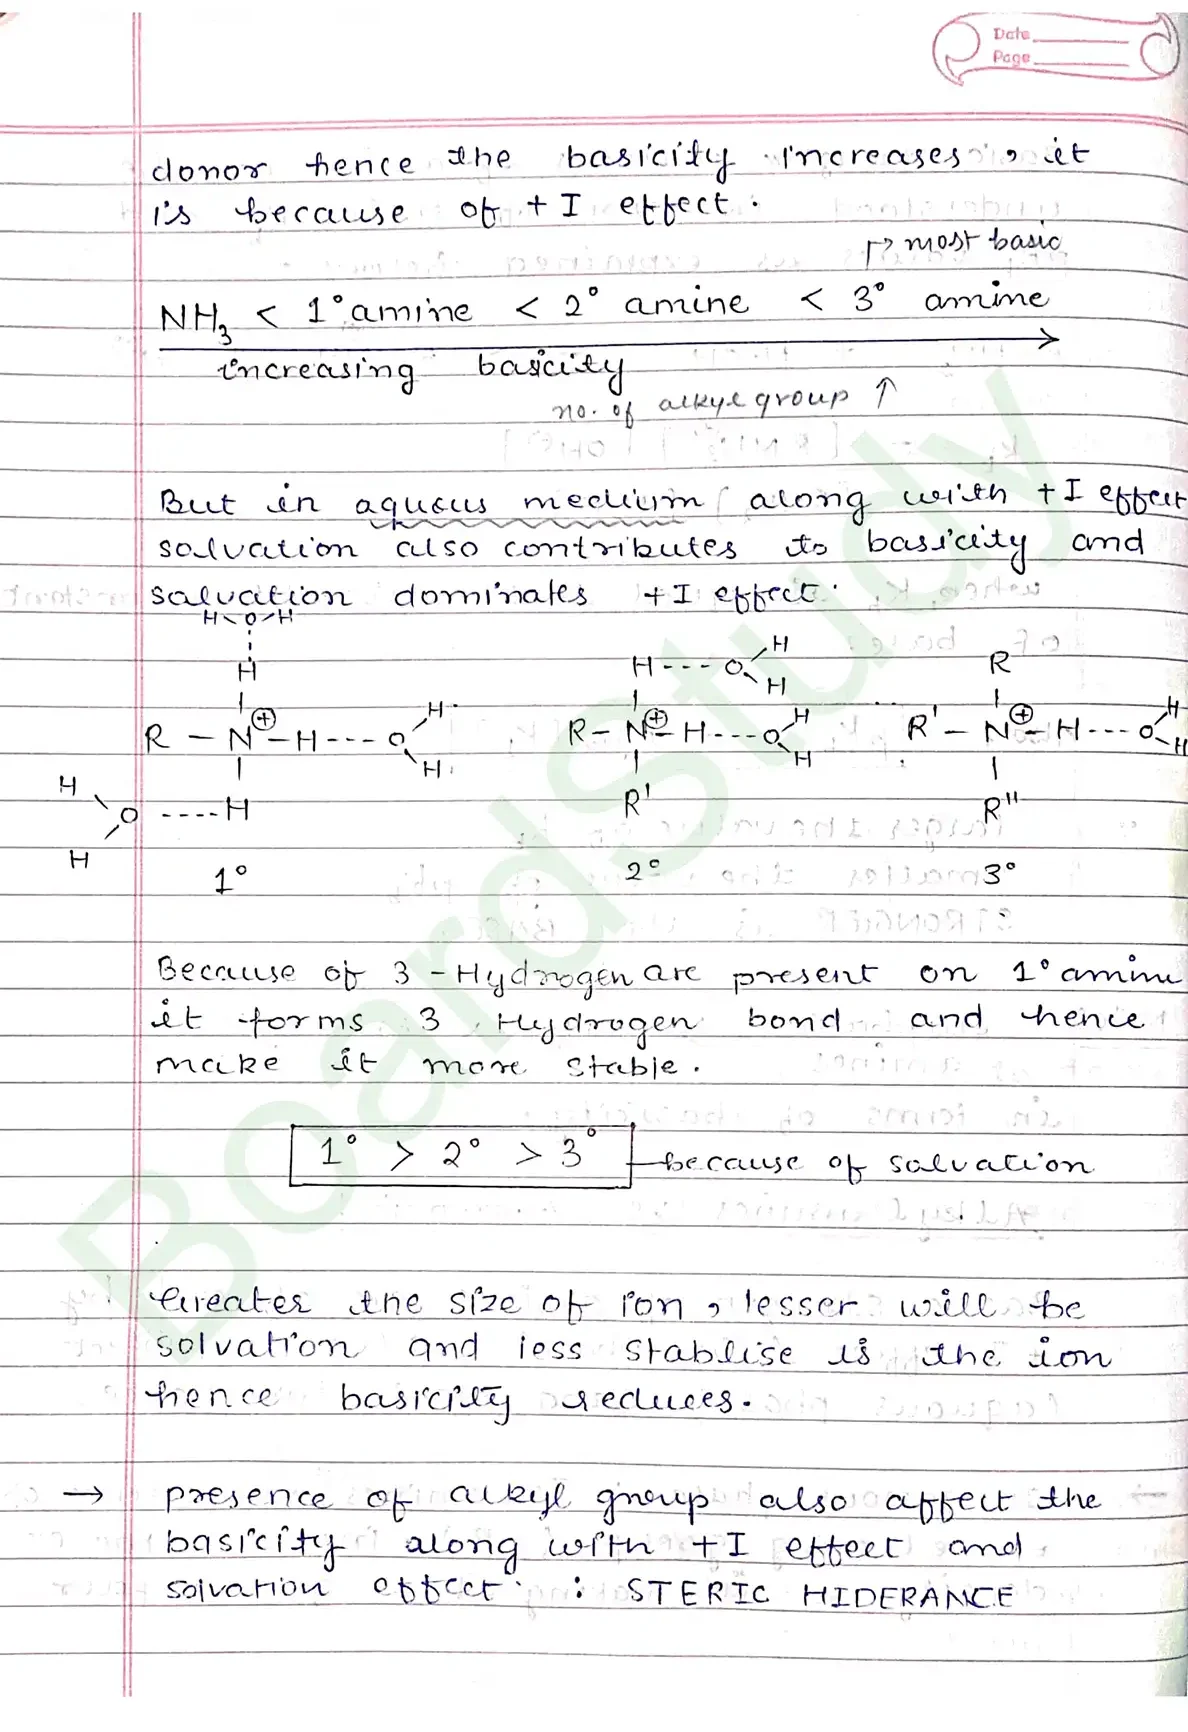 Date
Page
donor hence the basicity increases, it
is because of + I effect.
↱ most basic
NH3 < 1° amine < 2° amine < 3° amine
increasing basicity
no. of alkyl group ↑
But in aqueus medium along with + I effect
solvation also contributes to basicity and
solvation dominates + I effect.
H O H
H H---O H R
H
R - N⊕ - H --- O H R - N⊕ - H --- O H R' - N⊕ - H --- O H
H H H
H
O ---- H R' R"
H
1° 2° 3°
Because of 3 - Hydrogen are present on 1° amine
it forms 3 Hydrogen bond and hence
make it more stable.
1° > 2° > 3° because of solvation
Greater the size of ion, lesser will be
solvation and less stablise is the ion
hence basicity reduces.
→ presence of alkyl group also affect the
basicity along with + I effect and
solvation effect : STERIC HIDERANCE
BoardStudy